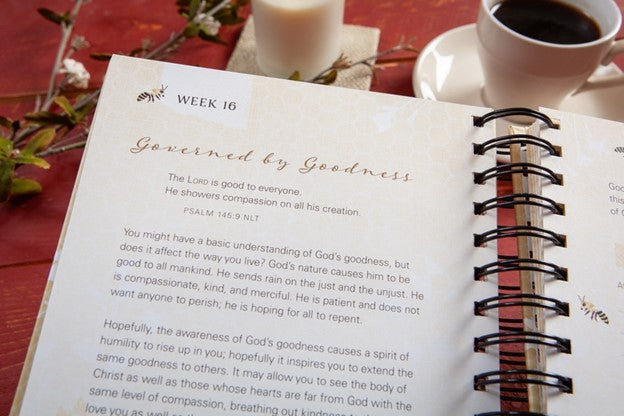 WEEK 16
Governed by Goodness
The LORD is good to everyone.
He showers compassion on all his creation.
PSALM 145:9 NLT
You might have a basic understanding of God's goodness, but
does it affect the way you live? God's nature causes him to be
good to all mankind. He sends rain on the just and the unjust. He
is compassionate, kind, and merciful. He is patient and does not
want anyone to perish; he is hoping for all to repent.
Hopefully, the awareness of God's goodness causes a spirit of
humility to rise up in you; hopefully it inspires you to extend the
same goodness to others. It may allow you to see the body of
Christ as well as those whose hearts are far from God with the
same level of compassion, breathing out kindness
love you as well as